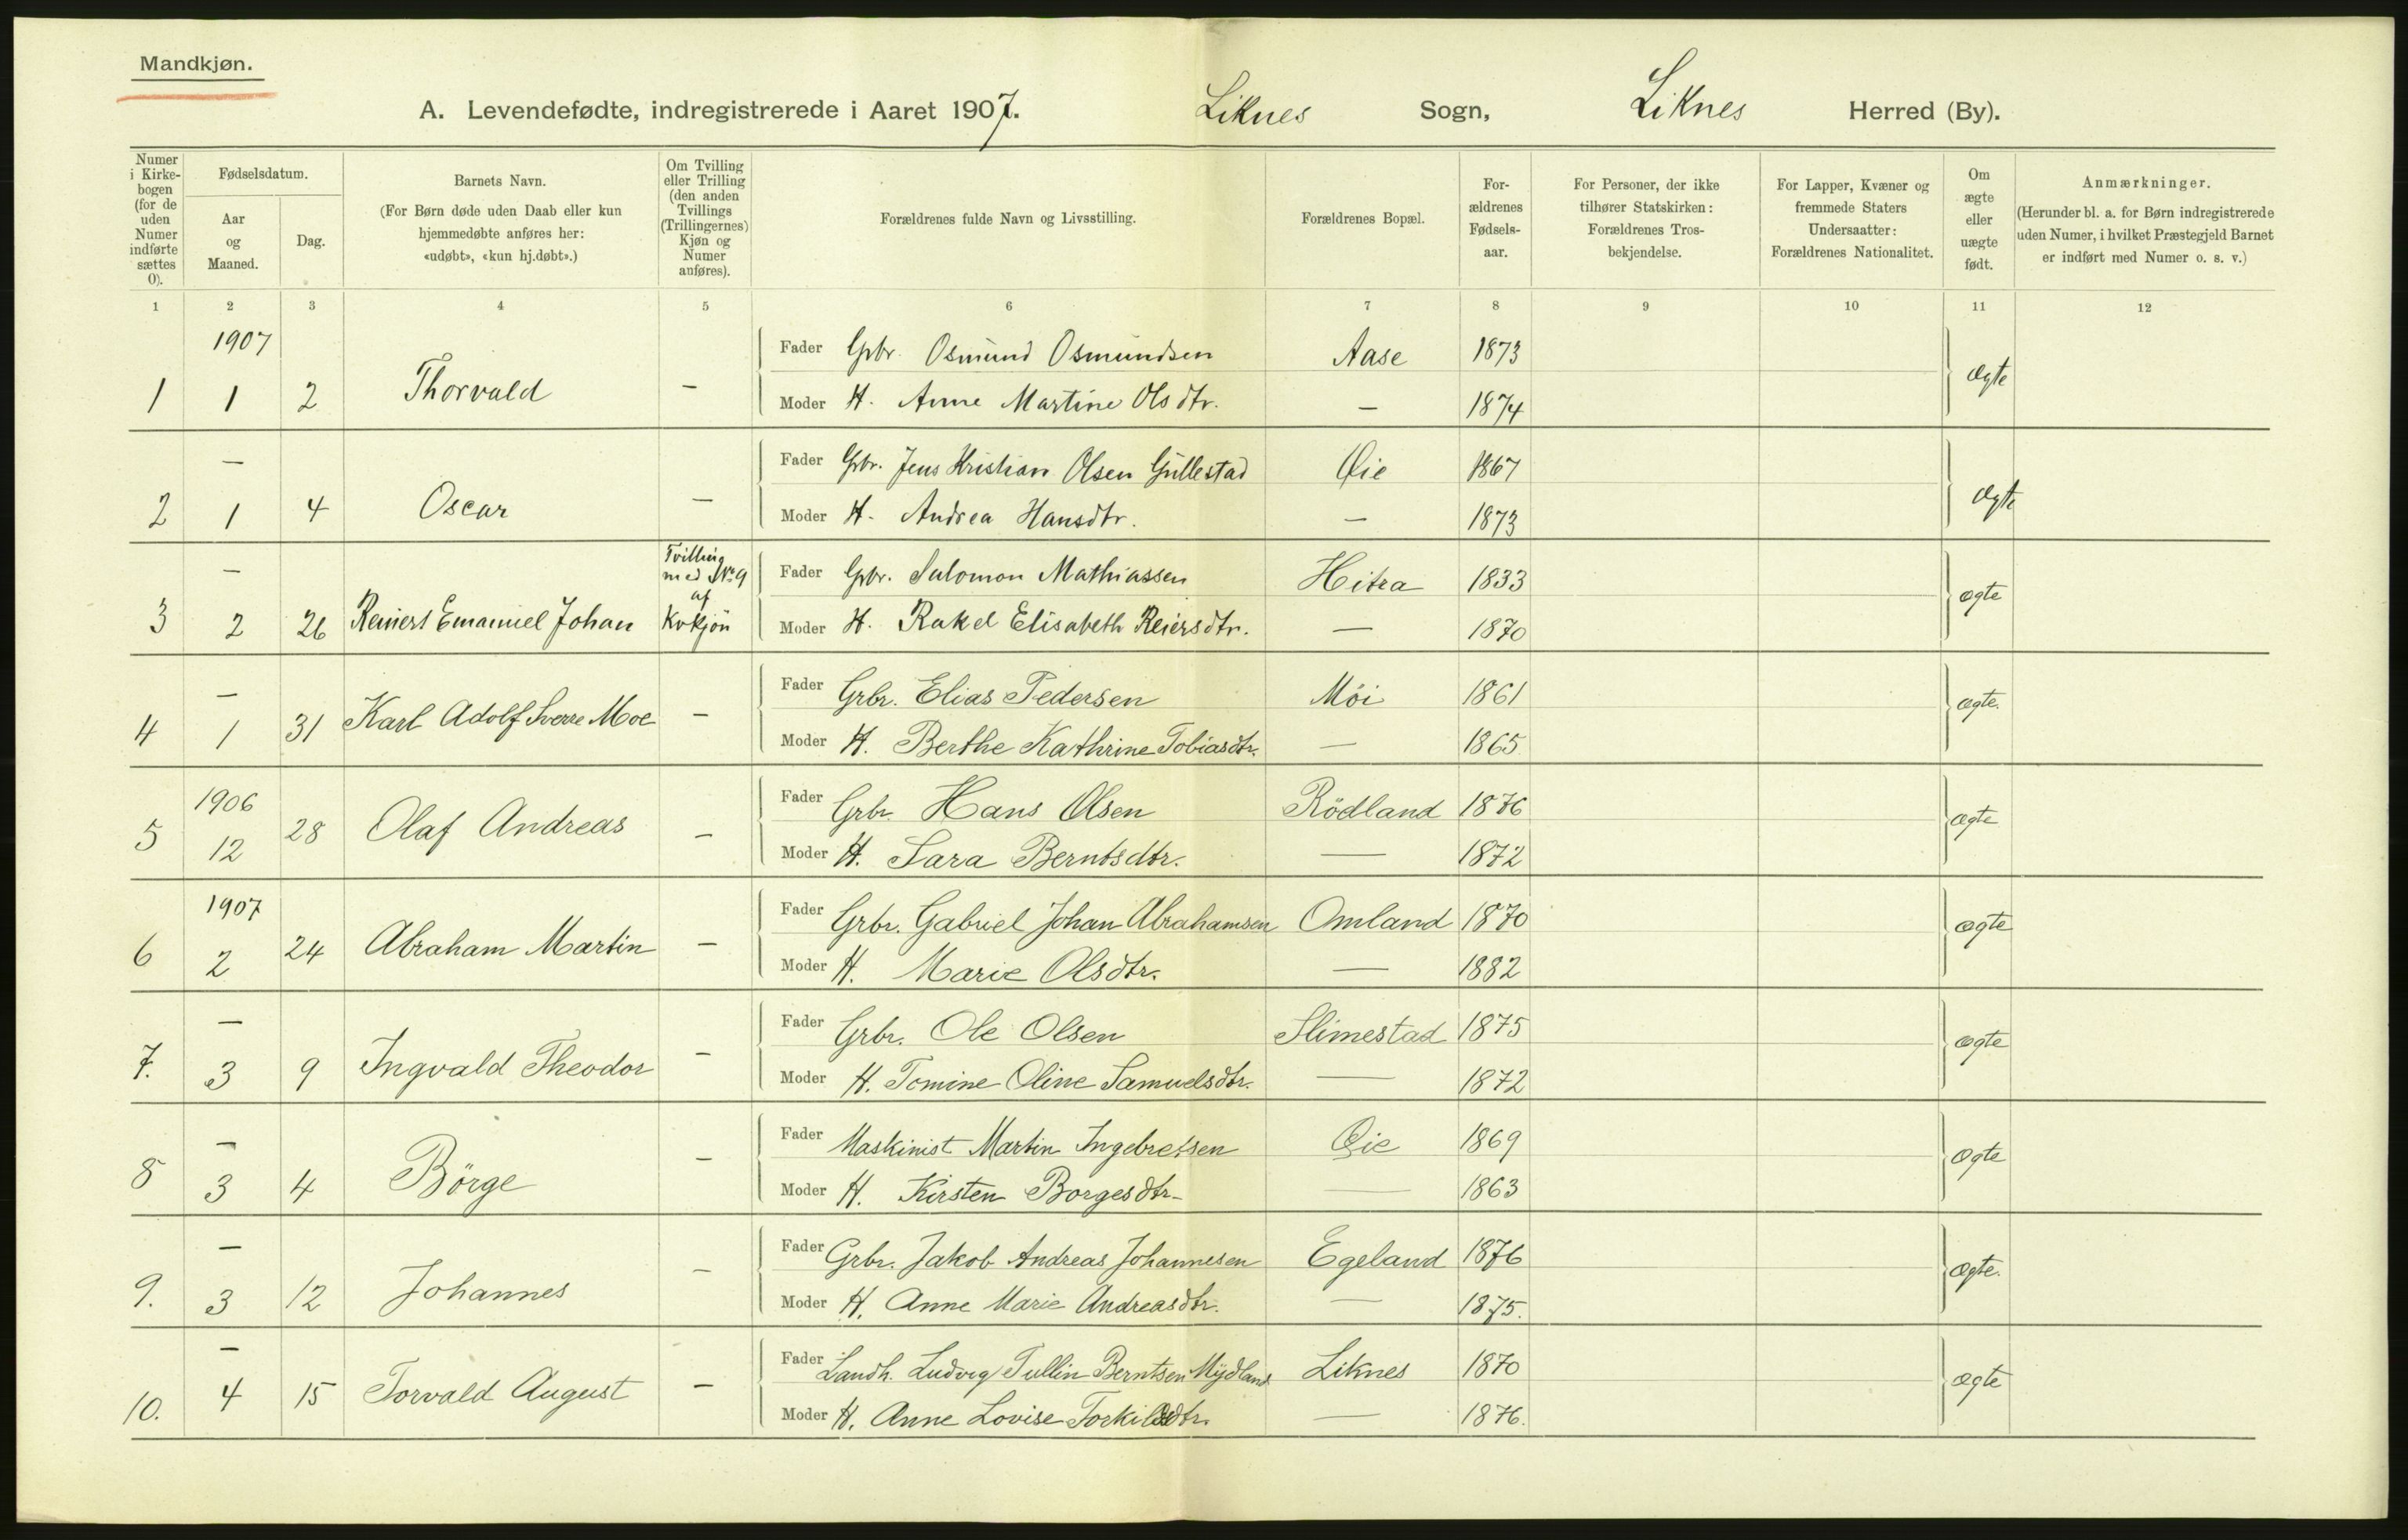 Mandkjøn.
A. Levendefødte, indregistrerede i Aaret 1907. Liknes Sogn, Liknes Herred (By).
Numer i Kirke-bogen (for de uden Numer indførte sættes 0).
Fødselsdatum.
Aar og Maaned.
Dag.
Barnets Navn.
(For Børn døde uden Daab eller kun hjemmedøbte anføres her: «udøbt», «kun hj.døbt».)
Om Tvilling eller Trilling (den anden Tvillings (Trillingernes) Kjøn og Numer anføres).
Forældrenes fulde Navn og Livsstilling.
Forældrenes Bopæl.
For-ældrenes Fødsels-aar.
For Personer, der ikke tilhører Statskirken: Forældrenes Tros-bekjendelse.
For Lapper, Kvæner og fremmede Staters Undersaatter: Forældrenes Nationalitet.
Om ægte eller uægte født.
Anmærkninger.
(Herunder bl. a. for Børn indregistrerede uden Numer, i hvilket Præstegjeld Barnet er indført med Numer o. s. v.)
1 2 3 4 5 6 7 8 9 10 11 12
1907
Fader Gbr. Osmund Osmundsen Aase 1873
1 1 2 Thorvald — ægte
Moder H. Anne Martine Olsdtr. — 1874
—
Fader Gbr. Jens Kristian Olsen Gullestad Øie 1867
2 1 4 Oscar — ægte
Moder H. Andrea Hansdtr. — 1873
—
Tvilling med No 9 af Kvkjön
Fader Gbr. Salomon Mathiassen Hitra 1833
3 2 26 Reinert Emanuel Johan ægte
Moder H. Rakel Elisabeth Reiersdtr. — 1870
—
Fader Grbr. Elias Pedersen Möi 1861
4 1 31 Karl Adolf Sverre Moe — ægte.
Moder H. Berthe Kathrine Tobiasdtr. — 1865
1906
Fader Grbr. Hans Olsen Rödland 1876
5 12 28 Olaf Andreas — ægte
Moder H. Sara Berntsdtr. — 1872
1907
Fader Grbr. Gabriel Johan Abrahamsen Omland 1870
6 2 24 Abraham Martin — ægte
Moder H. Marie Olsdtr. — 1882
—
Fader Grbr. Ole Olsen Slimestad 1875
7. 3 9 Ingvald Theodor — ægte
Moder H. Tomine Oline Samuelsdtr. — 1872
—
Fader Maskinist Martin Ingebretsen Øie 1869
8 3 4 Börge — ægte
Moder H. Kirsten Borgesdtr. — 1863
—
Fader Grbr. Jakob Andreas Johannesen Egeland 1876
9. 3 12 Johannes — ægte.
Moder H. Anne Marie Andreasdtr. — 1875.
—
Fader Landh. Ludvig Tullin Berntsen Mydland Liknes 1870
10. 4 15 Torvald August — ægte
Moder H. Anne Lovise Torkildsdtr. — 1876.